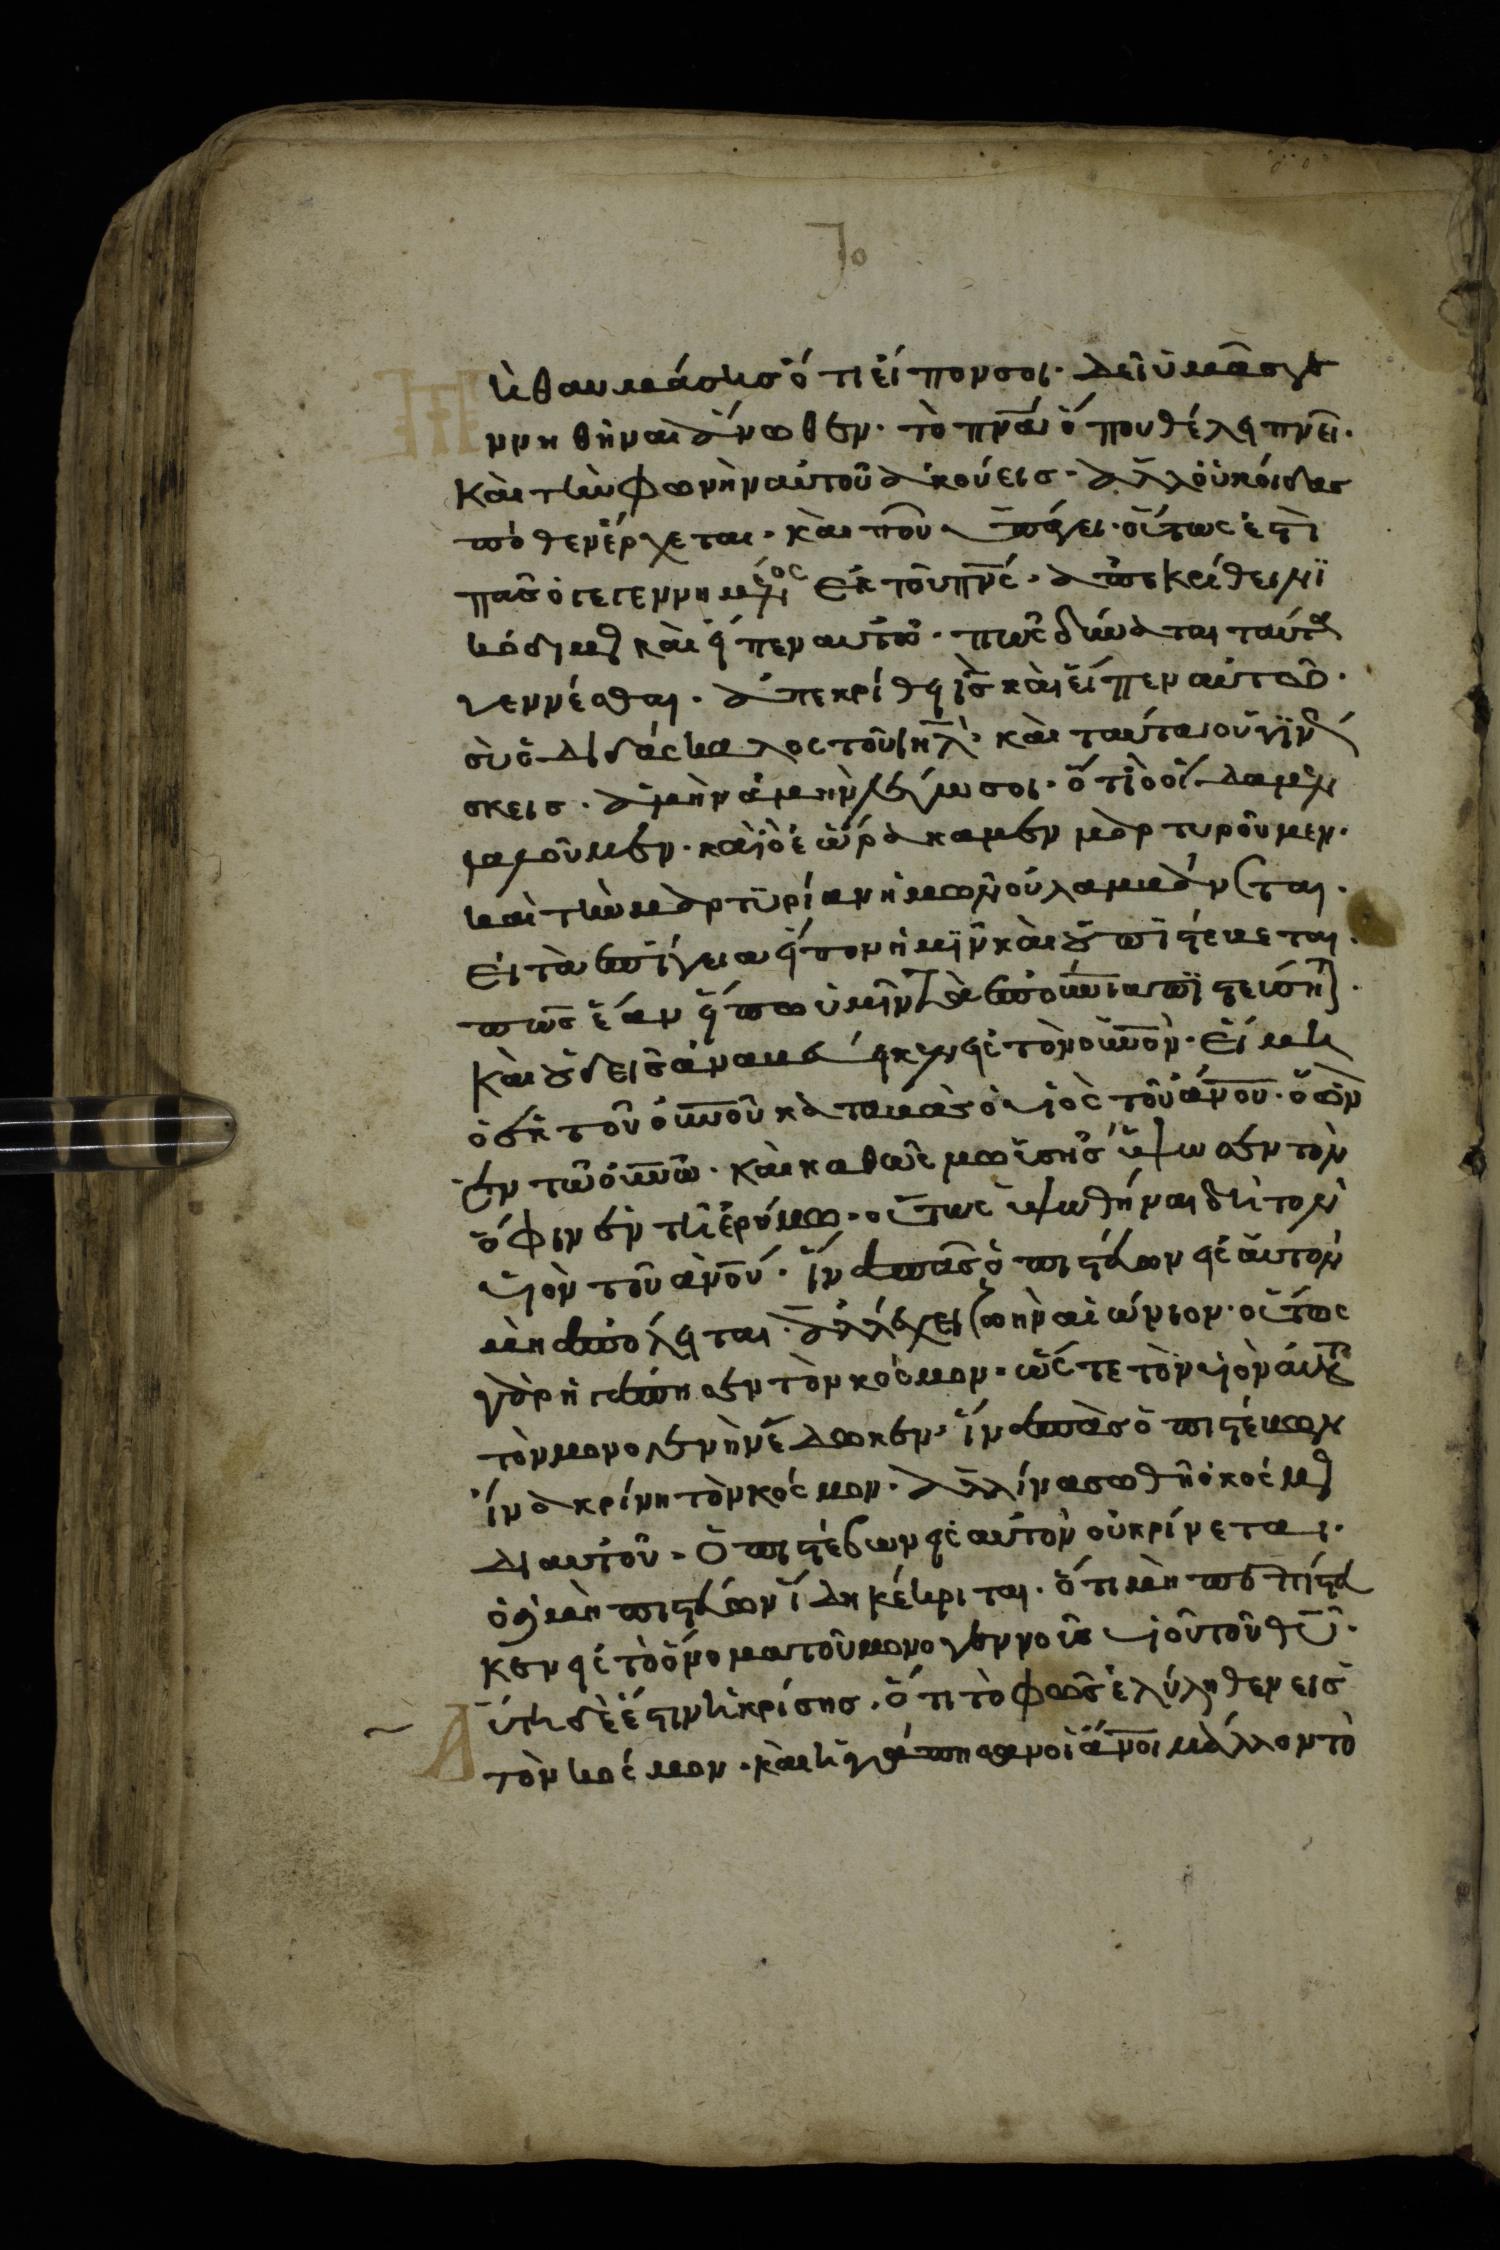 ὴ θαυμάσης ὅτι εἶπον σοι· δεῖ ὑμᾶς γε
ννηθῆναι ἄνωθεν· τὸ πνᾶ ὅπου θέλει πνεῖ·
καὶ τὴν φωνὴν αὐτοῦ ἀκούεις· ἀλλ οὐκ οἶδας
πόθεν ἔρχεται· καὶ ποῦ ὑπάγει· οὕτως ἐστὶ
πᾶς ὁ γεγεννημένος ἐκ τοῦ πνς· ἀπεκρίθει νϊ
κόδιμος καὶ εἶπεν αὐτῶ· πῶς δύναται ταῦτα
γεννέσθαι· ἀπεκρίθη ις καὶ εἶπεν αὐτῶ·
σὺ ὁ διδάσκαλος τοῦ ιηλ· καὶ ταῦτα οὐ γϊνώ
σκεις· ἀμὴν ἀμὴν λέγω σοι· ὅτι ὃ οἴδαμεν
λαλοῦμεν· καὶ ὃ ἑωράκαμεν μαρτυροῦμεν·
καὶ τὴν μαρτϋρίαν ἡμῶν οὐ λαμβάνεται·
εἰ τὰ ἐπίγεια εἶπον ἡμϊν καὶ οὐ πιστεύεται·
πῶς ἐὰν εἴπω ὑμῖν τὰ ἐπουνια πϊστεύσητε·
καὶ οὐδεὶς ἀναβέβηκεν εἰς τὸν οὐνον· εἰ μὴ
ὁ ἐκ τοῦ οὐνοῦ καταβὰς ὁ υἱὸς τοῦ ἀνου· ὁ ὢν
ἐν τῶ οὐνῶ· καὶ καθὼς μωϊσῆς ὕψωσεν τὸν
ὄφιν ἐν τῆ ἐρήμω· οὕτως ὑψωθῆναι δεῖ τὸν
υἱὸν τοῦ ἀνου· ἵνα πᾶς ὁ πιστεύων εἰς αὐτὸν
μὴ ἀπόληται· ἀλλ ἔχει ζωὴν αἰώνιον· οὕτως
γὰρ ἠγάπησεν τὸν κόσμον· ὥστε τὸν υἱὸν αὐτοῦ
τὸν μονογενὴν ἔδωκεν· ἵνα πᾶς ὁ πιστεύων
ἵνα κρίνη τὸν κόσμον· ἀλλ ἵνα σωθῆ ὁ κόσμος
δι αὐτοῦ· ὁ πιστεύων εἰς αὐτὸν οὐ κρίνεται·
ὁ δὲ μὴ πιστεύων ἴδη κέκριται· ὅτι μὴ πεπίστευ
κεν εἰς τὸ ὄνομα τοῦ μονογεννοῦς υἱοῦ τοῦ θυ·
Αὕτη δὲ ἐστιν ἡ κρίσης· ὅτι τὸ φῶς ἐλύληθεν εἰς
τὸν κόσμον· καὶ ἠγάπησαν οἱ ἄνοι μᾶλλον τὸ